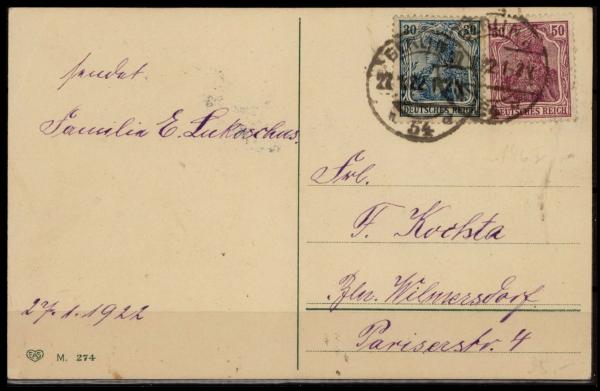 sendet
Familie E. Lukoschus.
27.1.1922
EAS
M. 274
30 30
50
DEUTSCHES REICH
DEUTSCHES REICH
BERLIN
54
Frl.
F. Kochta
Bln. Wilmersdorf.
Pariserstr. 4